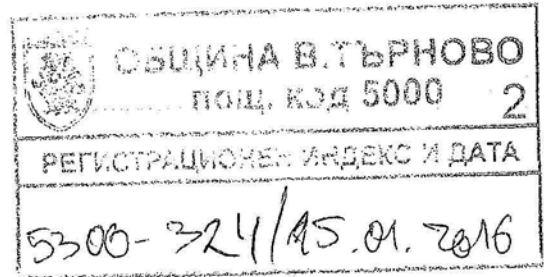 ОБЩИНА В.ТЪРНОВО
пощ. код 5000 2
РЕГИСТРАЦИОНЕН ИНДЕКС И ДАТА
5300-324/15.01.2016